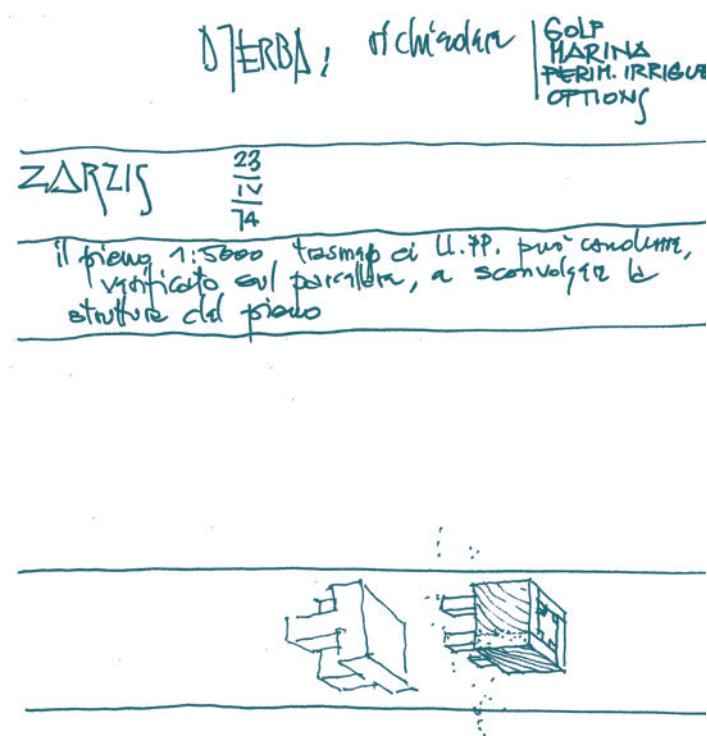 DJERBA: richiedere
GOLF
MARINA
PERIM. IRRIGUE
OPTIONS
ZARZIS
23
IV
74
il piano 1:5000 ci U.PP. può condurre,
verificato sul parcellare, a sconvolgere la
struttura del piano